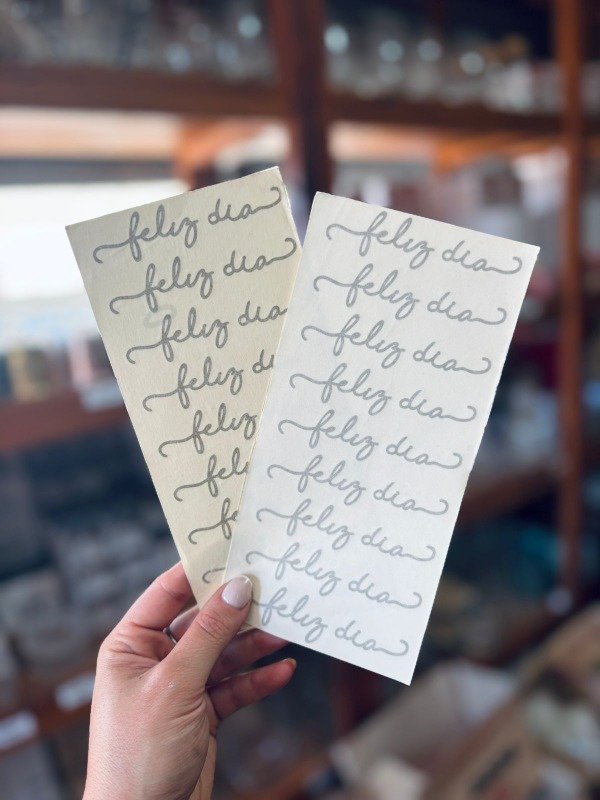 feliz dia
feliz dia
feliz dia
feliz d
feliz
feli
fe
feliz dia
feliz dia
feliz dia
feliz dia
feliz dia
feliz dia
feliz dia
feliz dia
feliz dia